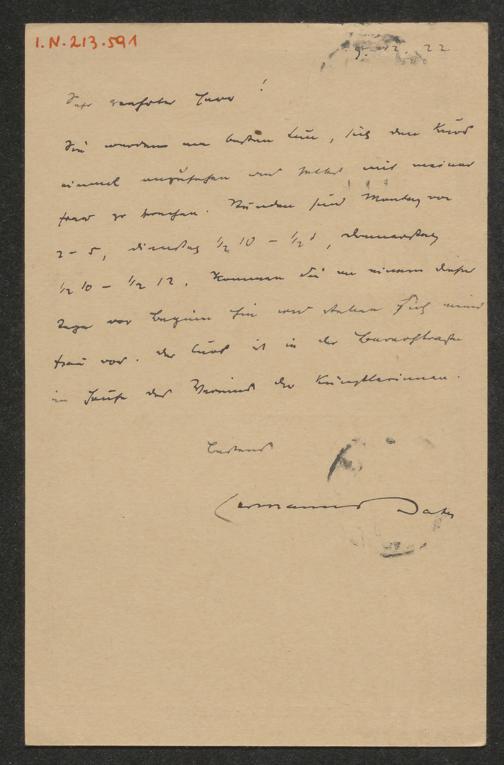 I.N. 213.591
22
Sehr geehrter Herr!
Sie werden am besten tun, sich den Kurs
einmal anzusehen und selbst mit meiner
Frau zu sprechen. Stunden sind Montag von
2–5, Dienstag ½ 10 – ½ 1, Donnerstag
½ 10 – ½ 12. Kommen Sie an einem dieser
Tage vor Beginn hin und stellen sich meiner
Frau vor. Der Kurs ist in der Barerstrasse
im Hause des Vereins der Künstlerinnen.
Bestens